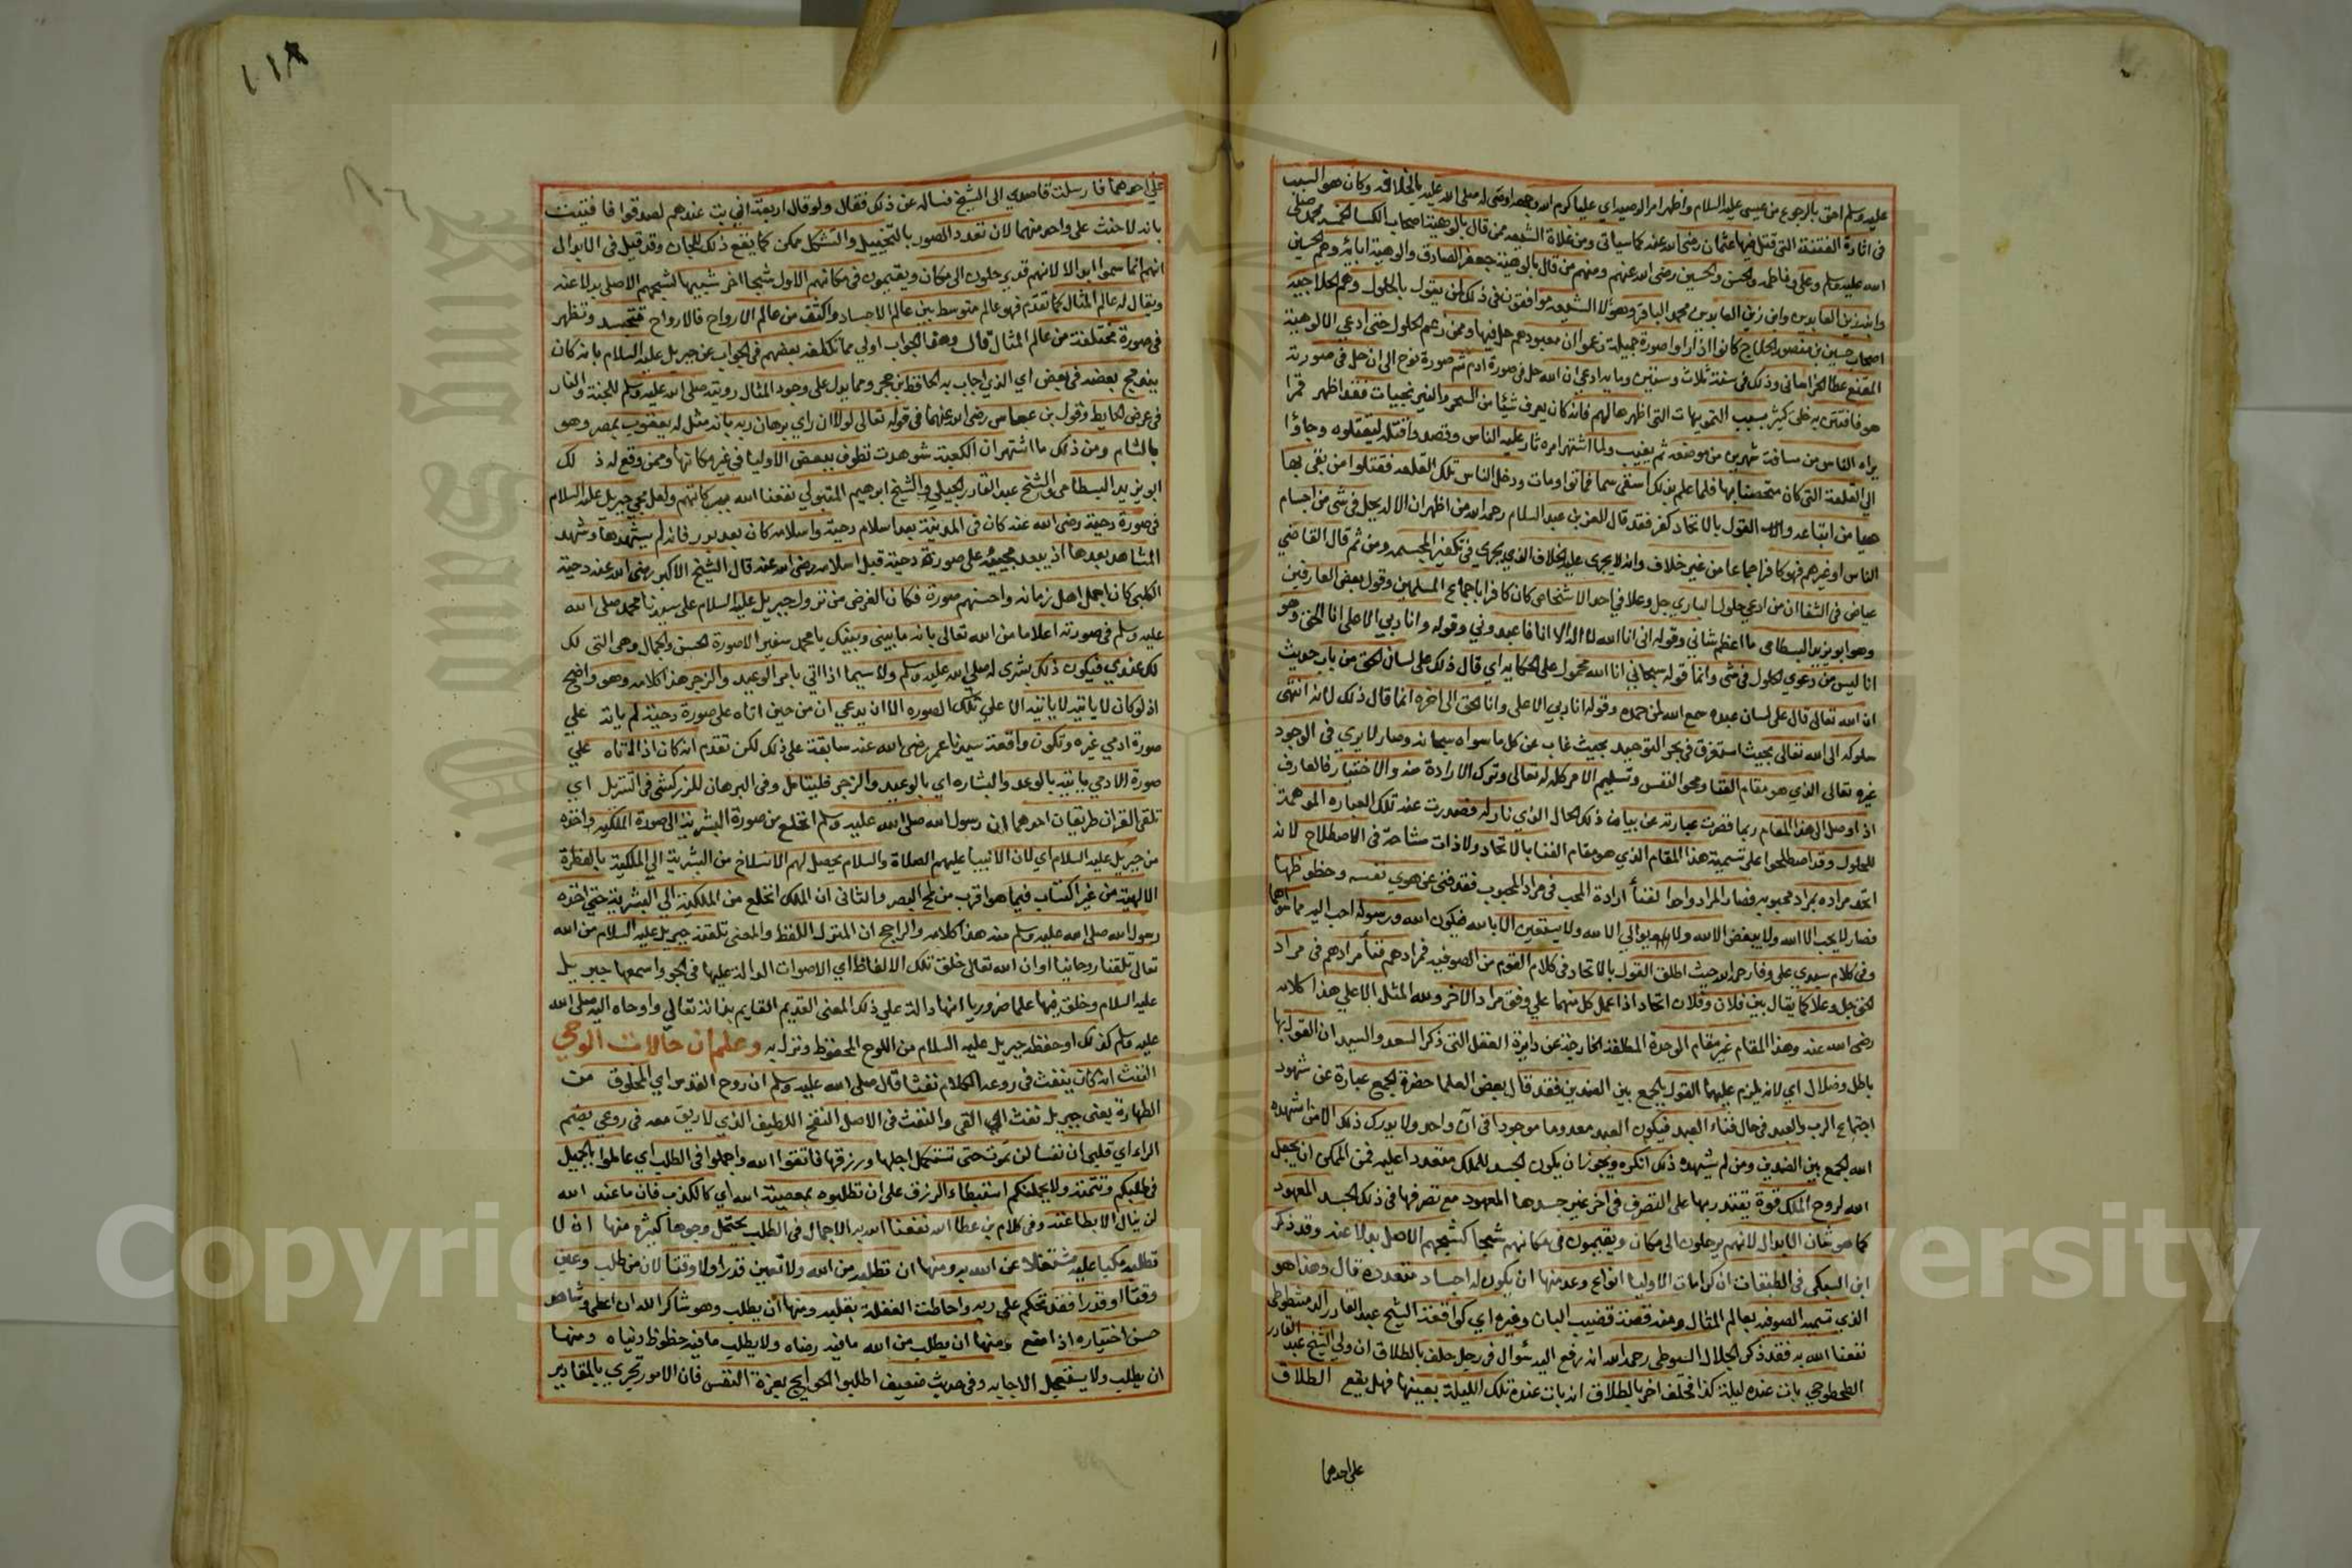 عليه وسلم احق بالرجوع من عيسى عليه السلام واظهر امر الوصيه اي عليا كرم الله وجهه اوصى له صلى الله عليه بالخلافه وكان هو السبب
في اثارة الفتنة التي قتل فيها عثمان رضي الله عنه كما سياتى ومن غلاة الشيعه من قال بالوهية اصحاب الكسا الخمسه محمد صلى
الله عليه وسلم وعلى وفاطمه والحسن والحسين رضى الله عنهم ومنهم من قال بالوهية جعفر الصادق والوهية ابائه وهم الحسين
وابنه زين العابدين وابن زين العابدين محمد الباقر وهولا الشيعه موافقون فى ذلك لمن يقول بالحلول وهم الحلاجيه
اصحاب حسين بن منصور الحلاج كانوا اذا راوا صورة جميلة زعموا ان معبودهم حل فيها وممن زعم الحلول حتى ادعي الالوهية
المقنع عطا الخراساني وذلك فى سنة ثلاث وستين ومايه ادعي ان الله حل فى صورة ادم ثم صورة نوح الى ان حل فى صورته
هو فافتتن به خلق كثير بسبب التمويهات التى اظهرها لهم فانه كان يعرف شيئا من السحر والنيرنجيات فقد اظهر قمرا
يراه الناس من مسافت شهرين من موضعه ثم يغيب ولما اشتهر امره ثار عليه الناس وقصدوا قتله ليقتلوه وجاؤا
الي القلعة التى كان متحصنا بها فلما علم بذلك استقى سما فماتوا ومات ودخل الناس تلك القلعه فقتلوا من بقي بها
حيا من اتباعه والقول بالاتحاد كفر فقد قال العز بن عبد السلام رحمه الله من اظهر ان الاله يحل فى شى من اجسام
الناس او غيرهم فهو كافر اجماعا من غير خلاف وانه لا يجرى عليه الخلاف الذى يجري فى تكفير المجسمه ومن ثم قال القاضي
عياض فى الشفا ان من ادعي حلول الباري جل وعلا في احد الاشخاص كان كافرا باجماع المسلمين وقول بعض العارفين
وهو ابو يزيد البسطامى ما اعظم شانى وقوله انى انا الله لا اله الا انا فاعبدوني وقوله وانا دبي الاعلى انا الحق وهو
انا ليس من دعوي الحلول فى شى وانما قوله سبحاني انا الله محمول على الحكايه اي قال ذلك على لسان الحق من باب حديث
ان الله تعالى قال على لسان عبده سمع الله لمن حمده وقوله انا دبي الاعلى وانا الحق الى اخره انما قال ذلك لانه انتهى
سلوكه الى الله تعالى بحيث استغرق فى بحر التوحيد بحيث غاب عن كل ما سواه سبحانه وصار لا يرى فى الوجود
غيره تعالى الذي هو مقام الفنا ومحو النفس وتسليم الامر كله له تعالى وترك الارادة منه والاختيار فالعارف
اذا وصل الى هذا المقام ربما قصرت عبارته عن بيان ذلك الحال الذي نازله فصدرت عنه تلك العباره الموهمة
للحلول وقد اصطلحوا على تسمية هذا المقام الذي هو مقام الفنا بالاتحاد ولاذات مشاحة فى الاصطلاح لانه
اتحد مراده بمراد محبوبه فصار المراد واحدا لفنأ ارادة المحب فى مراد المحبوب فقد فنى عن هوي نفسه وحظوظها
فصار لا يحب الا الله ولا يبغض الا لله ولا يوالي الا لله ولا يستعين الا بالله فيكون الله ورسوله احب اليه مما سواهما
وفى كلام سيدي على وفا رحمه الله حيث اطلق القول بالاتحاد فى كلام القوم من الصوفيه فمرادهم فنأ مرادهم فى مراد
الحق جل وعلا كما يقال بين فلان وفلان اتحاد اذا عمل كل منهما علي وفق مراد الاخر ولله المثل الاعلي هذا كلامه
رضى الله عنه وهذا المقام غير مقام الوحدة المطلقة الخارجة عن دايرة العقل التى ذكر السعد والسيد ان القول بها
باطل وضلال اي لانه يلزم عليهما القول بالجمع بين الضدين فقد قال بعض العلما حضرة الجمع عبارة عن شهود
اجتماع الرب والعبد فى حال فناء العبد فيكون العبد معدوما موجودا فى آن واحد ولا يدرك ذلك الا من اشهده
الله الجمع بين الضدين ومن لم يشهده ذلك انكره ويجوز ان يكون الجسد للملك متعددا اعليه فمن الممكن ان يجعل
الله لروح الملك قوة يقتدر بها على التصرف فى اخر غير جسدها المعهود مع تصرفها فى ذلك الجسد المعهود
كما هو شان الابدال لانهم يرحلون الى مكان ويقيمون فى مكانهم شبحا كشبحهم الاصل بدلا عنه وقد ذكر
ابن السبكى فى الطبقات ان كرامات الاوليا انواع وعد منها ان يكون له اجساد متعدده قال وهذا هو
الذي تسميه الصوفيه بعالم المثال ومنه قصة قضيب البان وغيره اي كواقعة الشيخ عبد القادر الدشطوطي
نفعنا الله به فقد ذكر الجلال السيوطى رحمه الله انه رفع اليه سؤال فى رجل حلف بالطلاق ان ولي الشيخ عبد القادر
الطحطوحي بات عنده ليلة كذا فحلف اخر بالطلاق انه بات عنده تلك الليلة بعينها فهل يقع الطلاق
على احدهما
١١٨
علي احدهما فارسلت قاصدي الى الشيخ فساله عن ذلك فقال ولو قال اربعة اني بت عندهم لصدقوا فافتيت
بانه لا حنث على واحد منهما لان تعدد الصور بالتخييل والتشكل ممكن كما يقع ذلك للجان وقد قيل فى الابدال
انهم انما سموا ابدالا لانهم قد يرحلون الى مكان ويقيمون فى مكانهم الاول شبحا اخر شبيها لشبحهم الاصلى بدلا عنه
ويقال له عالم المثال كما تقدم فهو عالم متوسط بين عالم الاجساد واكثف من عالم الارواح فالارواح فتجسد وتظهر
فى صورة مختلفة من عالم المثال قال وهذا الجواب اولي مما تكلفه بعضهم فى الجواب عن جبريل عليه السلام بانه كان
يندمج بعضه فى بعض اي الذي اجاب به الحافظ بن حجر ومما يدل على وجود المثال رويته صلى الله عليه وسلم للجنة والنار
فى عرض الحايط وقول بن عباس رضى الله عنهما فى قوله تعالى لولا ان راي برهان ربه بانه مثل له يعقوب بمصر وهو
بالشام ومن ذلك ما اشتهر ان الكعبة شوهدت تطوف ببعض الاوليا فى غير مكانها وممن وقع له ذ لك
ابو يزيد البسطامى والشيخ عبد القادر الجيلى والشيخ ابرهيم المتبولي نفعنا الله ببركاتهم ولعل مجي جبريل عليه السلام
فى صورة دحية رضى الله عنه كان فى المدينة بعد اسلام دحية واسلامه كان بعد بدر فانه لم يشهدها وشهد
المشاهد بعدها اذ يبعد مجيئه على صورة دحية قبل اسلامه رضى الله عنه قال الشيخ الاكبر رضى الله عنه دحية
الكلبى كان اجمل اهل زمانه واحسنهم صورة فكان الغرض من نزول جبريل عليه السلام على سيدنا محمد صلى الله
عليه وسلم فى صورته اعلاما من الله تعالى بانه ما بيني وبينك يا محمد سفير الا صورة الحسن والجمال وهى التى لك
لك عندي فيكون ذلك بشرى له صلى الله عليه وسلم ولا سيما اذا اتي بامر الوعيد والزجر هذا كلامه وهو واضح
اذ لو كان لا ياتيه لا ياتيه الا على تلك الصوره الا ان يدعي ان من حين اتاه على صورة دحية لم ياته علي
صورة ادمي غيره وتكون واقعة سيدنا عمر رضى الله عنه سابقة على ذلك لكن تقدم انه كان اذا اتاه علي
صورة الادمي ياتيه بالوعد والبشاره اي بالوعيد والزجر فليتامل وفى البرهان للزركشى فى التنزيل اي
تلقى القران طريقان احدهما ان رسول الله صلى الله عليه وسلم انخلع من صورة البشرية الى صورة الملكيه واخذه
من جبريل عليه السلام اي لان الانبيا عليهم الصلاة والسلام يحصل لهم الانسلاخ من البشرية الي الملكية بالفطرة
الالهية من غير اكتساب فيما هو اقرب من لمح البصر والثانى ان الملك انخلع من الملكية الى البشرية حتى اخذه
رسول الله صلى الله عليه وسلم منه هذا كلامه والراجح ان المنزل اللفظ والمعنى تلقفه جبريل عليه السلام من الله
تعالى تلقفا روحانيا او ان الله تعالى خلق تلك الالفاظ اي الاصوات الدالة عليها فى الجو واسمعها جبريل
عليه السلام وخلق فيها علما ضروريا انها دالة علي ذلك المعنى القديم القايم بذاته تعالي واوحاه اليه صلى الله
عليه وسلم كذلك او حفظه جبريل عليه السلام من اللوح المحفوظ ونزل به وعلم ان حالات الوحي
النفث انه كان ينفث فى روعه الكلام نفثا قال صلى الله عليه وسلم ان روح القدس اي المخلوق من
الطهارة يعنى جبريل نفث اي القى والنفث فى الاصل النفخ اللطيف الذي لا ريق معه فى روعي بضم
الراء اي قلبى ان نفسا لن تموت حتى تستكمل اجلها ورزقها فاتقوا الله واجملوا فى الطلب اي عاملوا بالجميل
فى طلبكم وتتمته ولا يحملنكم استبطاء الرزق على ان تطلبوه بمعصية الله اي كالكذب فان ما عند الله
لن ينال الا بطاعته وفى كلام بن عطا الله نفعنا الله به الاجمال فى الطلب يحتمل وجوها كثيرة منها ان لا
تطلبه مكبا عليه مشتغلا عن الله به ومنها ان تطلبه من الله ولا تعين قدرا ولا وقتا لان من طلب وعين
وقتا او قدرا فقد تحكم على ربه واحاطت الغفلة بقلبه ومنها ان يطلب وهو شاكر الله ان اعطى وشاهد
حسن اختياره اذا منع ومنها ان يطلب من الله ما فيه رضاه ولا يطلب ما فيه حظوظ دنياه ومنها
ان يطلب ولا يستعجل الاجابه وفى حديث ضعيف اطلبوا الحوايج بعزة النفس فان الامور تجري بالمقادير
Copyright © King Saud University